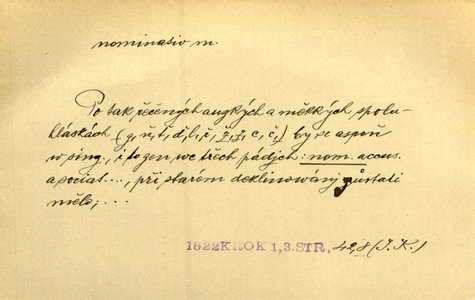 nominativ m.
Po tak řečených auzkých a měkkých spolu-
hláskách (j, ň, ť, ď, l, ř, ž, š, c, č,) by se aspoň
w sing., i to gen. we třech pádjch: nom. accus.
a sociat...., při starém deklinowánj zůstati
mělo; ...
1822KROK 1,3.STR, 42,8 (J.K.)